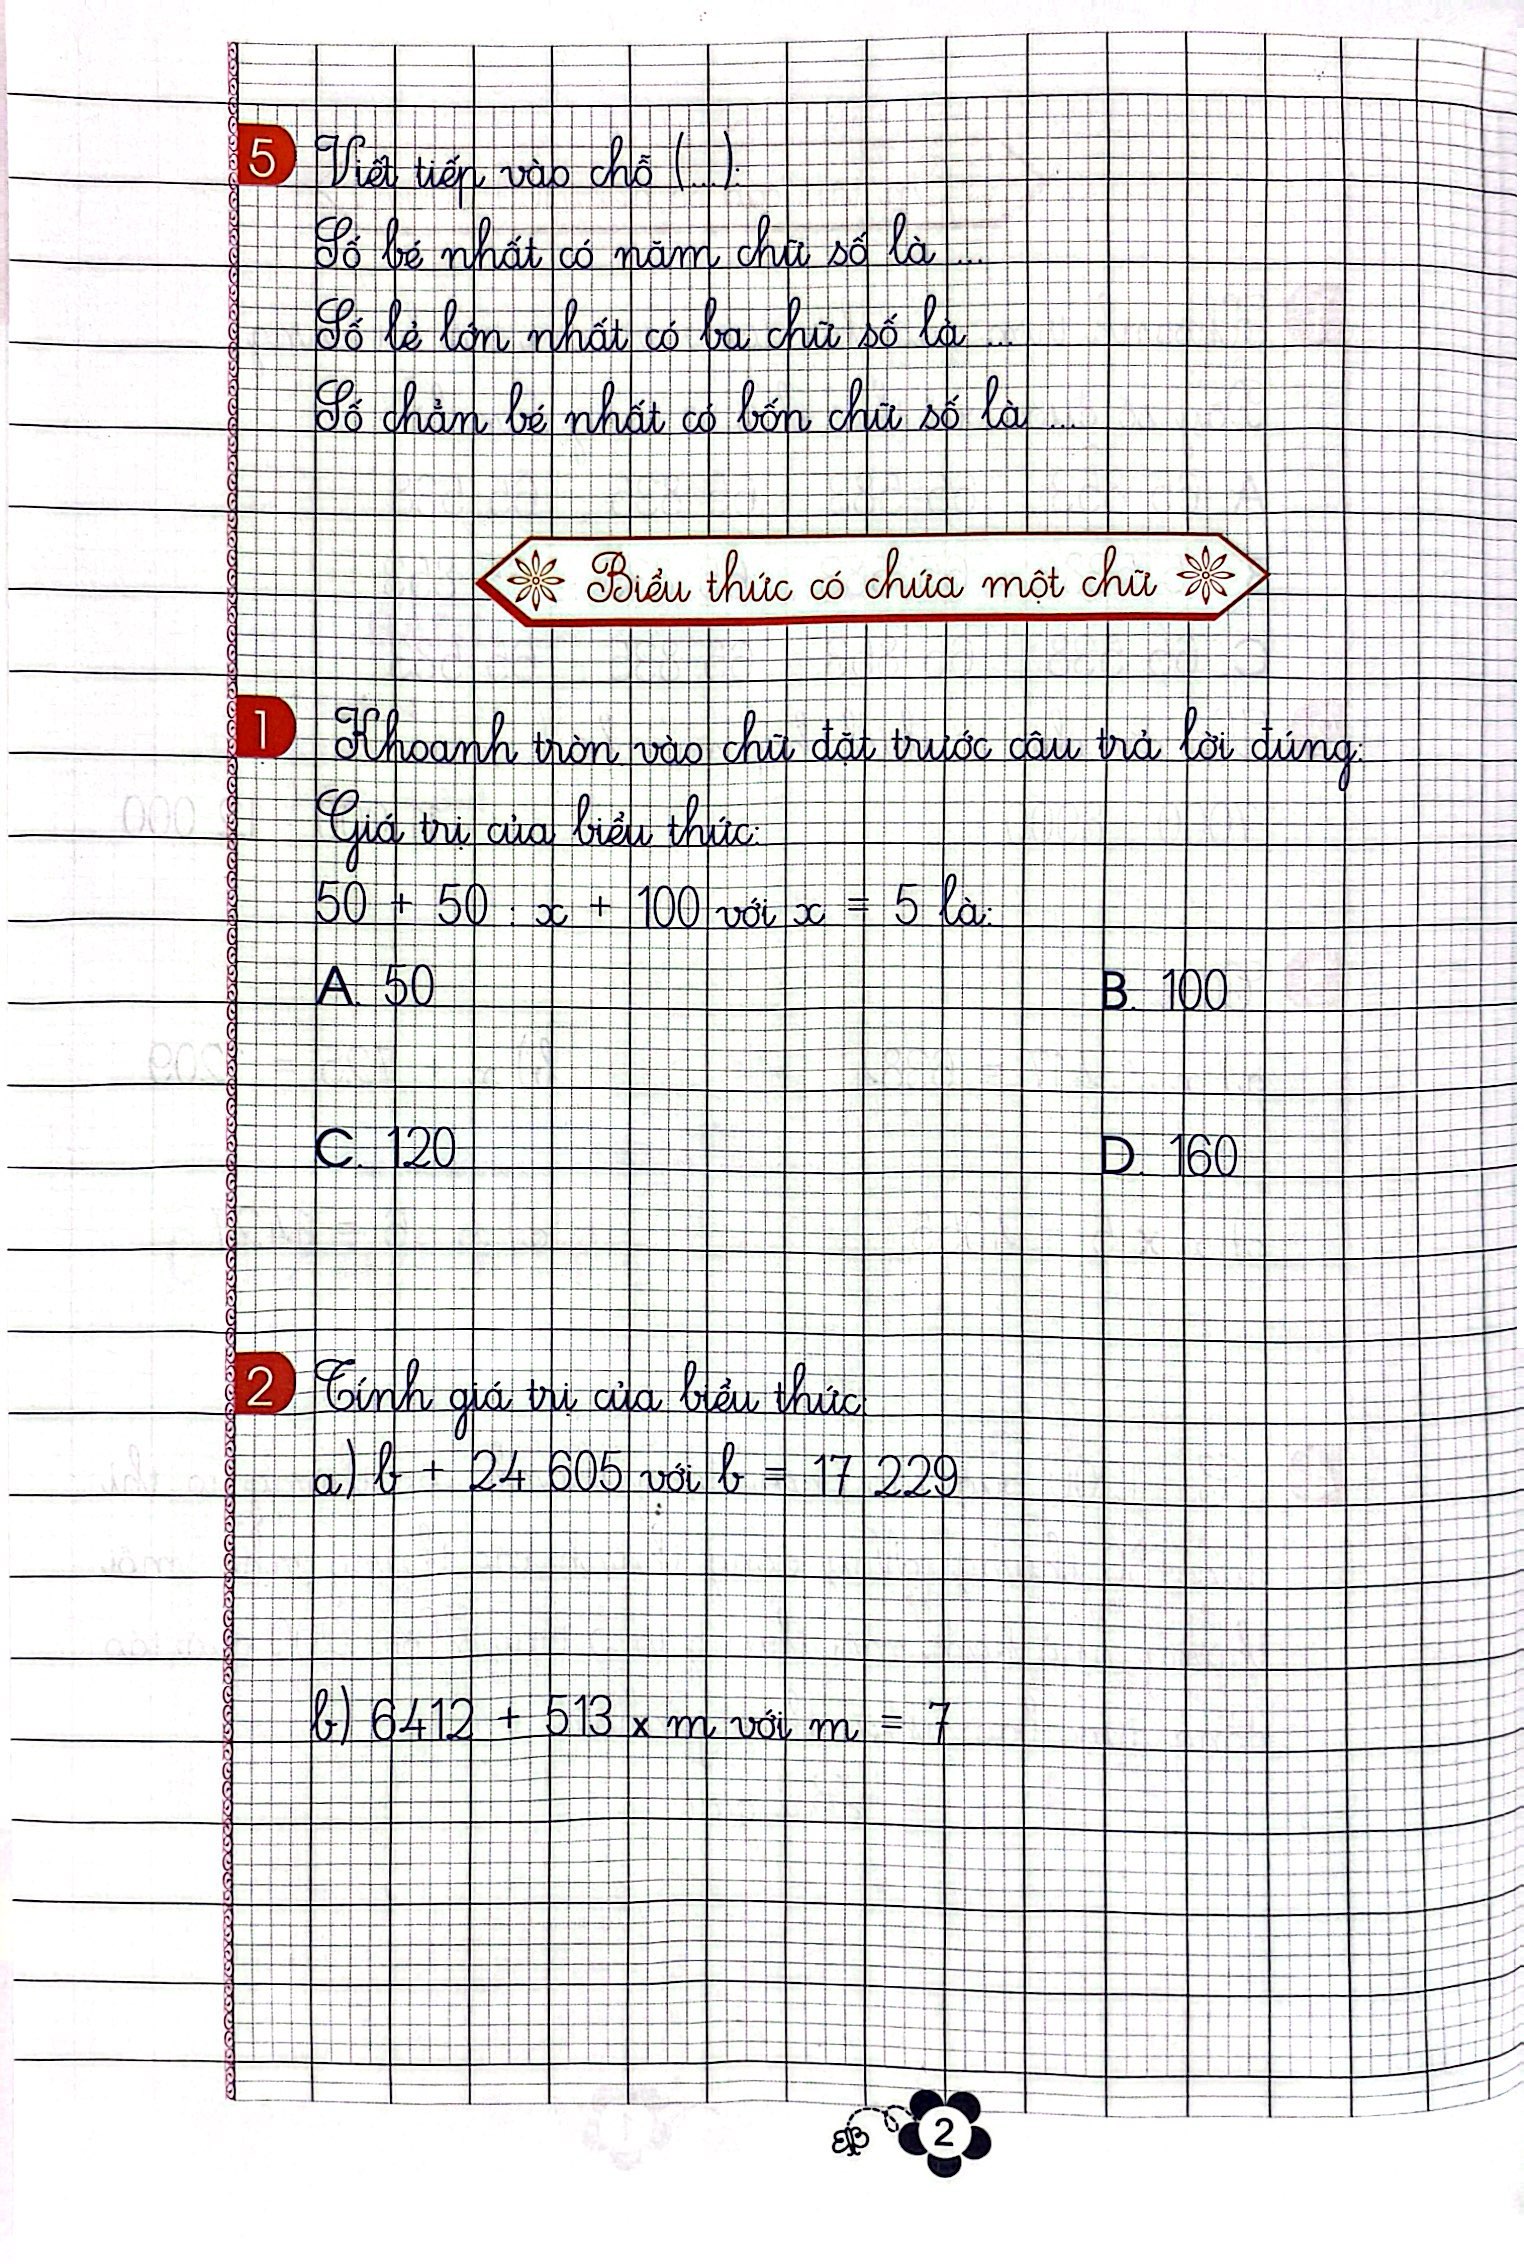 5 Viết tiếp vào chỗ (...):
Số bé nhất có năm chữ số là ...
Số lẻ lớn nhất có ba chữ số là ...
Số chẵn bé nhất có bốn chữ số là ...
Biểu thức có chứa một chữ
1 Khoanh tròn vào chữ đặt trước câu trả lời đúng:
Giá trị của biểu thức:
50 + 50 : x + 100 với x = 5 là:
A. 50 B. 100
C. 120 D. 160
2 Tính giá trị của biểu thức:
a) b + 24 605 với b = 17 229
b) 6412 + 513 x m với m = 7
2